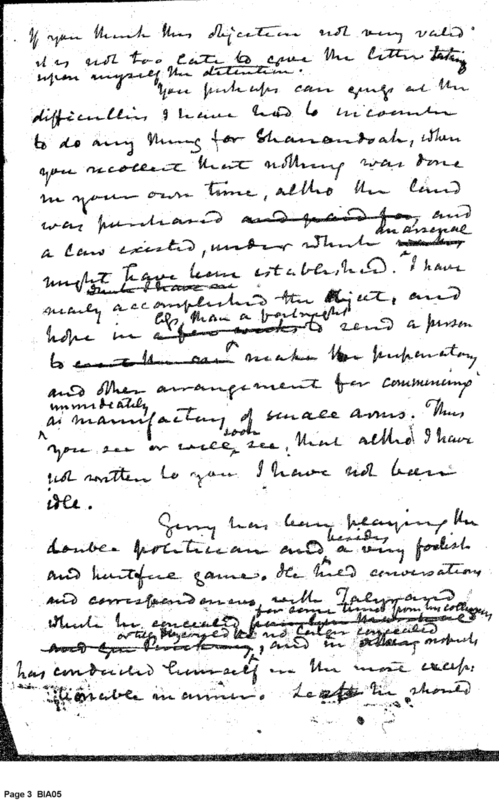 If you think this objection not very valid
it is not too late to give the letter taking
upon myself the detention.
You perhaps can guess at the
difficulties I have had to incounter
to do any thing for Shanandoah, when
you recollect that nothing was done
in your own time, altho the land
was purchased and paid for and
a law existed, under which an arsenal
might have been established. I have
nearly accomplished the object, and
hope in less than a fortnight a few weeks to send a person
to make the preparatory
and other arrangement for commencing
immediately
a manufactory of small arms. Thus
you see or will soon see, that altho I have
not written to you I have not been
idle.
Gerry has been playing the
double politician and besides a very foolish
and hurtful game. He held conversations
and correspondences with Talyrand
which he concealed for some time from his colleagues
or they discovered tho no longer concealed
and in other respects
has conducted himself in the most excep-
tionable manner. Lest he should
Page 3 BIA05